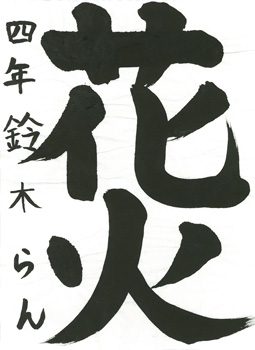 花火
四年鈴木らん